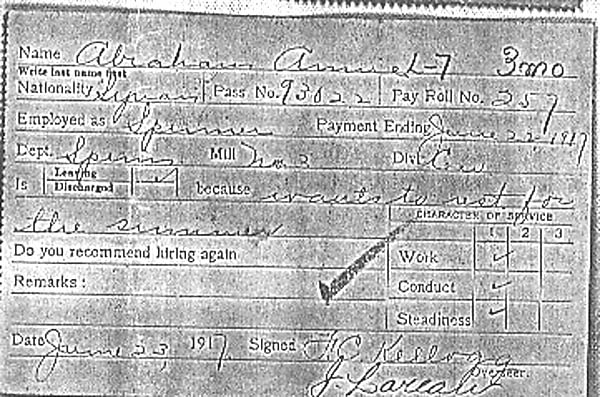 Name Abraham Annie L-7 3mo
Write last name first
Nationality Syrian Pass No. 93822 Pay Roll No. 257
Employed as Spinner Payment Ending June 22 1917
Dept. Spinng Mill No. 2 Divi.
Is Leaving ✓ because wants to rest for
Discharged
the summer
CHARACTER OF SERVICE
1 2 3
Do you recommend hiring again
Work ✓
Remarks : Conduct ✓
Steadiness ✓
Date June 23, 1917 Signed F.C. Kellogg
Overseer.
J.